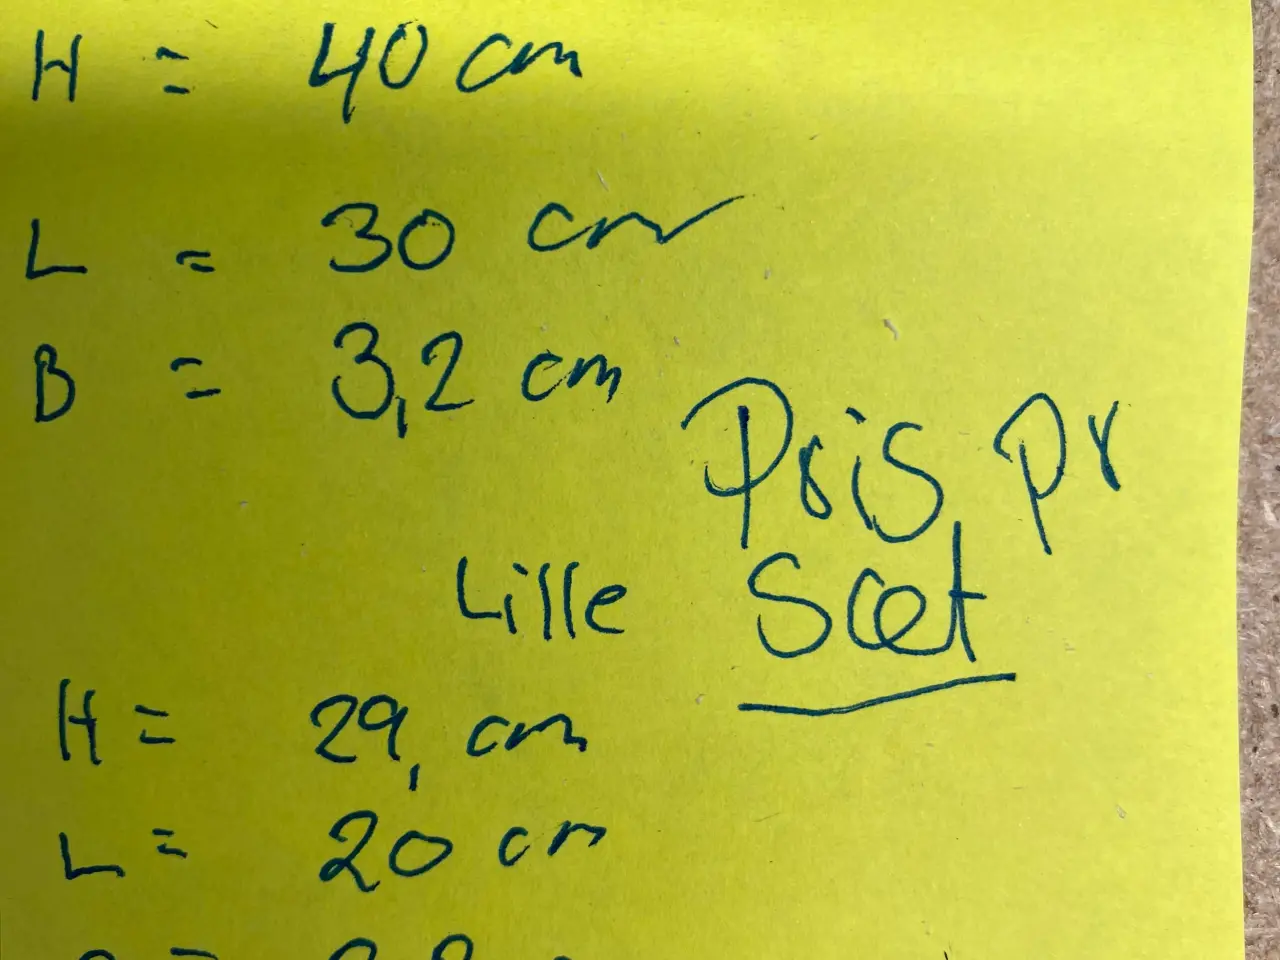 H = 40 cm
L = 30 cm
B = 3,2 cm
Pris pr
Lille Sæt
H = 29, cm
L = 20 cm